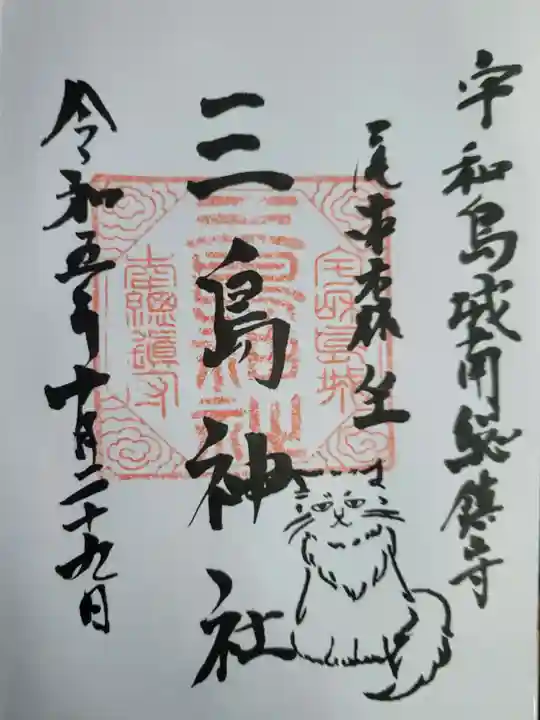 宇和島城南総鎮守
三島神社
三島神社
宇和島城
南総鎮守
令和五年十月二十九日